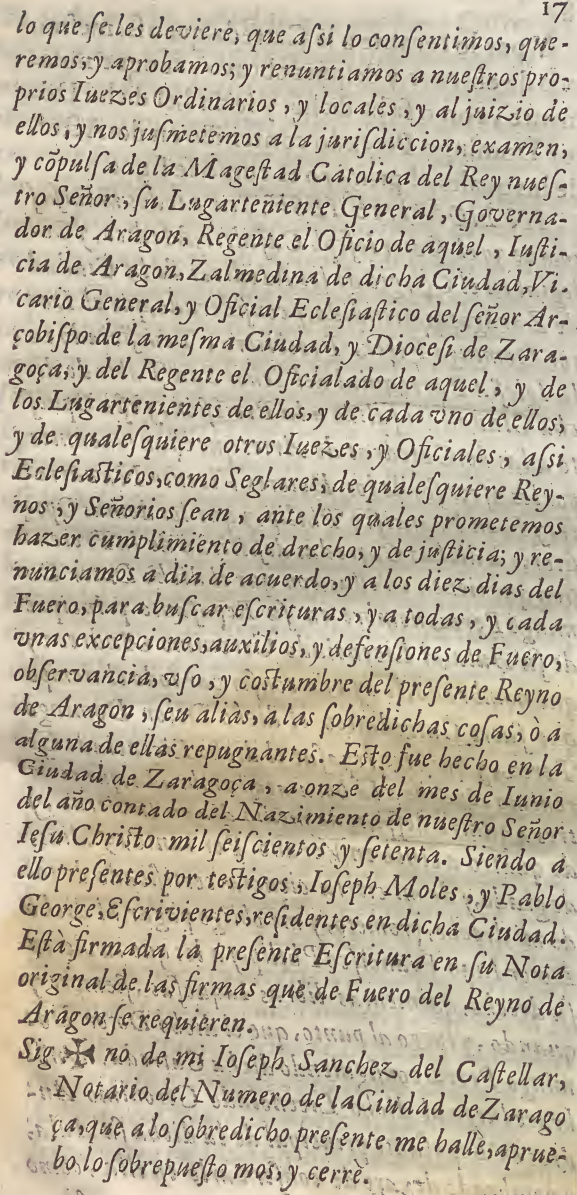 17
lo que ſe les deviere, que aſsi lo conſentimos, que-
remos, y aprobamos; y renuntiamos a nueſtros pro-
prios Iuezes Ordinarios, y locales, y al juizio de
ellos, y nos juſmetemos a la juriſdiccion, examen,
y cõpulſa de la Mageſtad Catolica del Rey nueſ-
tro Señor, ſu Lugarteniente General, Governa-
dor de Aragon, Regente el Oficio de aquel, Iuſti-
cia de Aragon, Zalmedina de dicha Ciudad, Vi-
cario General, y Oficial Ecleſiaſtico del ſeñor Ar-
çobiſpo de la meſma Ciudad, y Dioceſi de Zara-
goça, y del Regente el Oficialado de aquel, y de
los Lugartenientes de ellos, y de cada vno de ellos,
y de qualeſquiere otros Iuezes, y Oficiales, aſsi
Ecleſiaſticos, como Seglares, de qualeſquiere Rey-
nos, y Señorios ſean, ante los quales prometemos
hazer cumplimiento de drecho, y de juſticia; y re-
nunciamos a dia de acuerdo, y a los diez dias del
Fuero, para buſcar eſcrituras, y a todas, y cada
vnas excepciones, auxilios, y defenſiones de Fuero,
obſervancia, vſo, y coſtumbre del preſente Reyno
de Aragon, ſeu aliàs, a las ſobredichas coſas, ò a
alguna de ellas repugnantes. Eſto fue hecho en la
Ciudad de Zaragoça, a onze del mes de Iunio
del año contado del Nazimiento de nueſtro Señor
Ieſu Chriſto mil ſeiſcientos y ſetenta. Siendo à
ello preſentes por teſtigos, Ioſeph Moles, y Pablo
George, Eſcrivientes, reſidentes en dicha Ciudad.
Eſtà firmada la preſente Eſcritura en ſu Nota
original de las firmas que de Fuero del Reyno de
Aragon ſe requieren.
Sig ✠ no de mi Ioſeph Sanchez del Caſtellar,
Notario del Numero de la Ciudad de Zarago
ça, que a lo ſobredicho preſente me hallè, aprue-
bo lo ſobrepueſto mos, y cerrè.